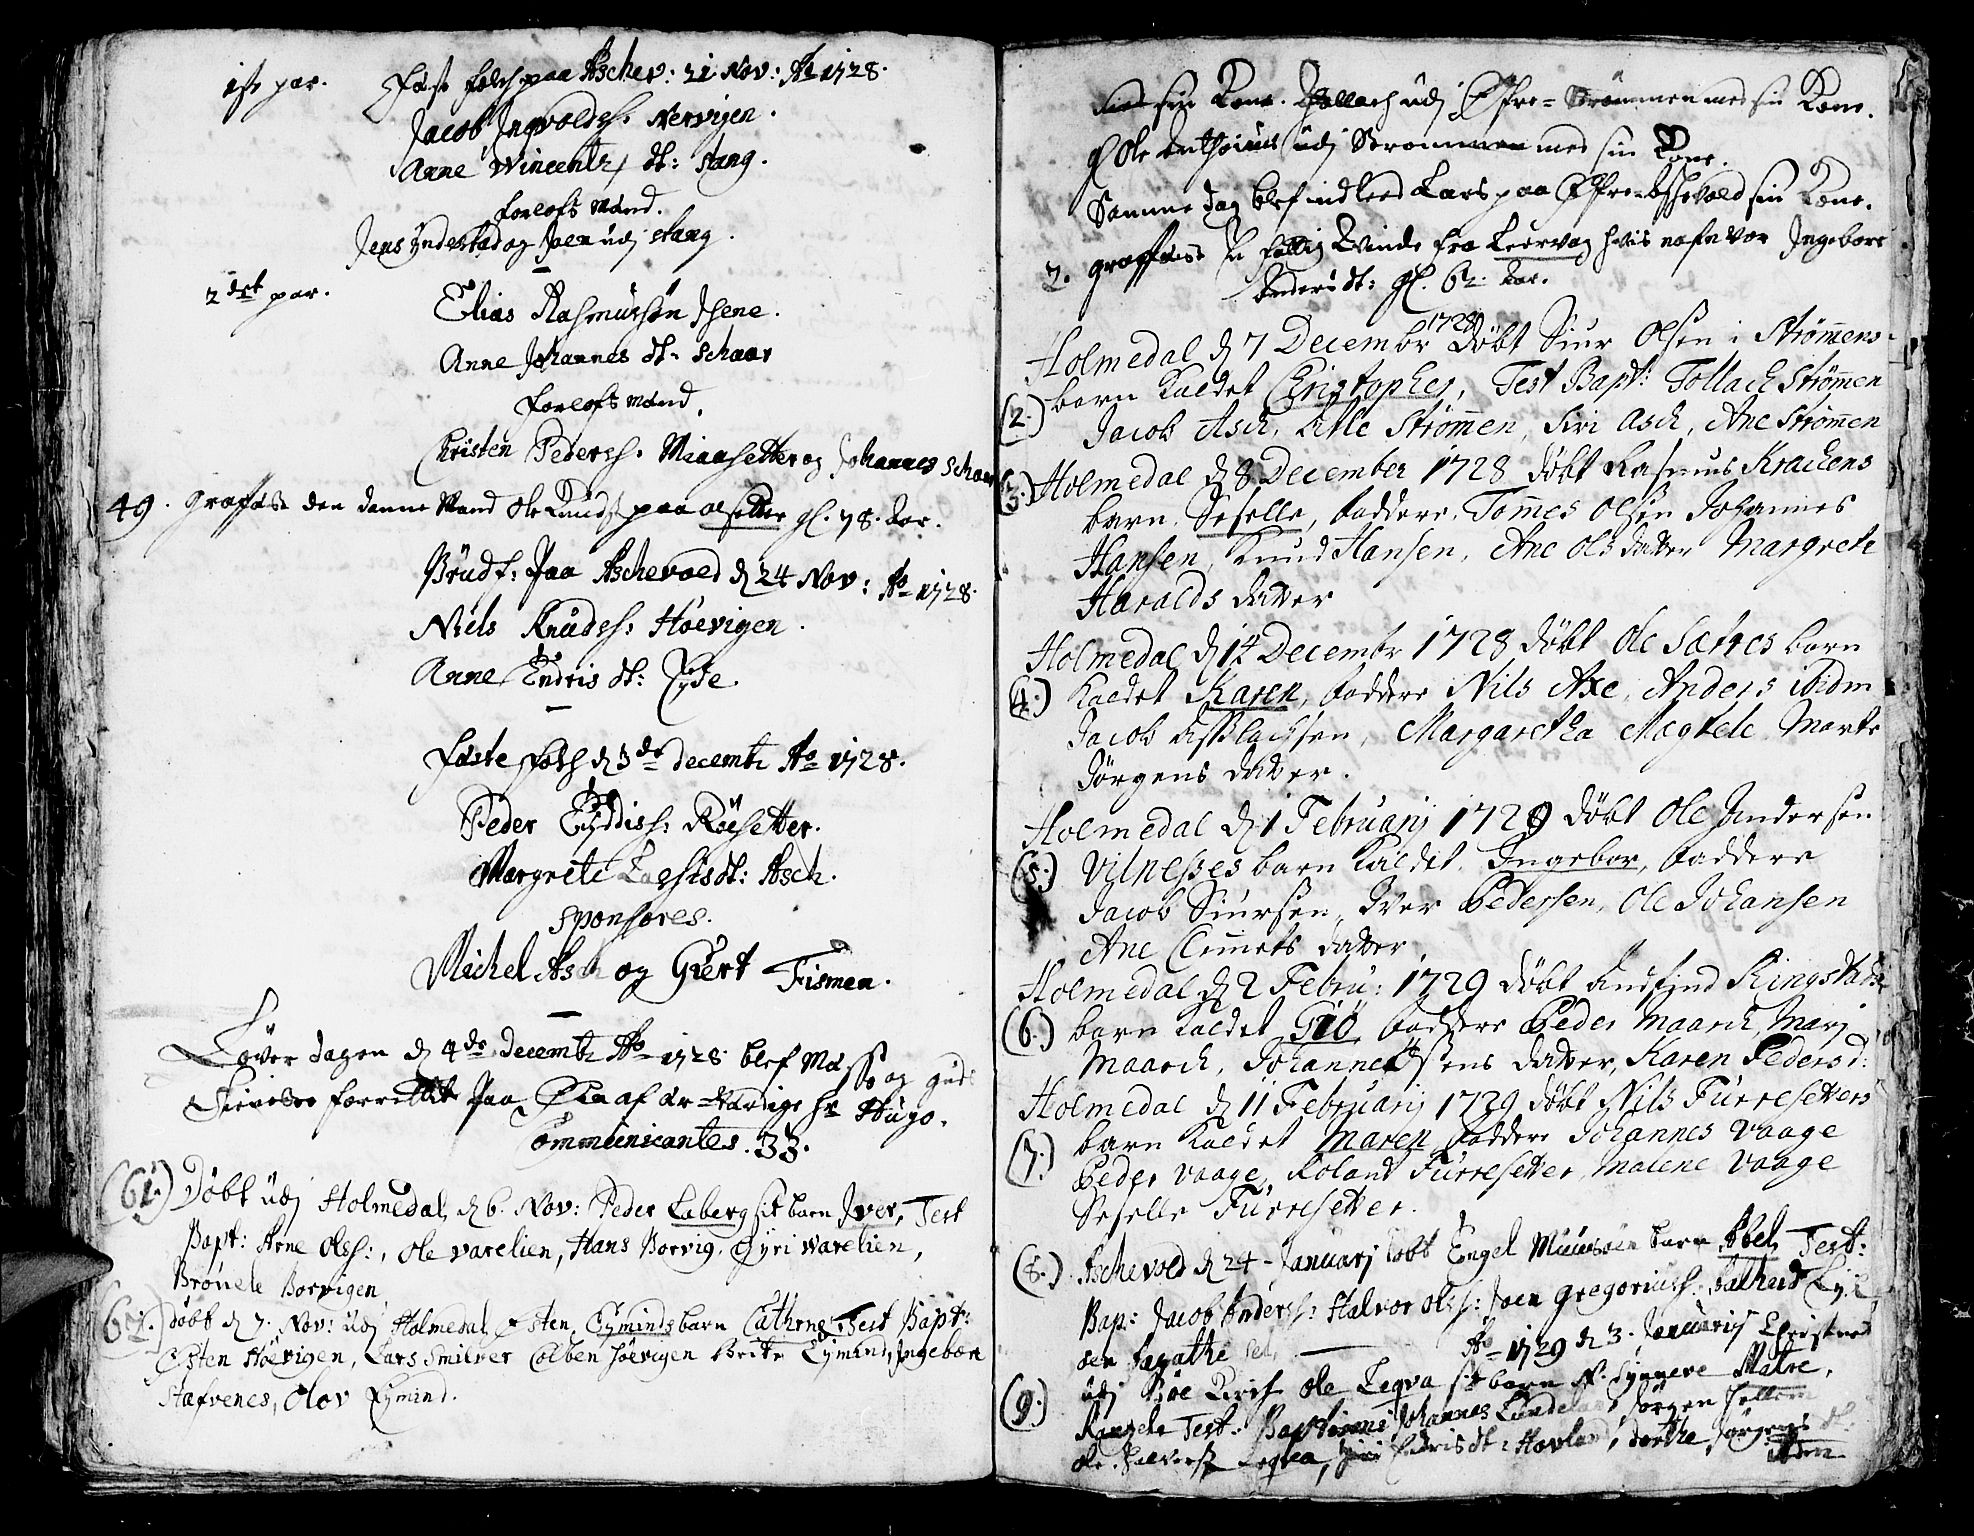 1ste par. Fæste folch paa Aschev: 21 Nov: Ao 1728.
Jacob Ingvoldss: Nervigen.
Anne Wincentz dt: stang.
forlofs mænd.
Jens Yndestad og Joen udj stang.
2det par.
Elias Rasmussøn Ihene.
Anne Johannes dt: Schaar
forlofs mænd.
Christen Pederss: Miaasetter og Johannes Schaar
49. græffæst den danne Mand Ole Knuds: paa olsetter gl. 78. Aar.
Brudf: Paa Aschevold d 24 Nov: Ao 1728.
Niels Knudss: Høevigen.
Anne Endris dt: Eyde.
Fæste Folch d 3de decembr Ao 1728.
Peder Eyddiss: Røesetter.
Margrete Larsis dt: Asch.
Sponsores.
Michel Asch og Giert Tismen.
Løver dagen d 4de decembr Ao 1728. blef Messe og guds
Tieneste forrettet Paa af ær-værdige hr Hugo.
Communicantes. 33.
(61.) Døbt udj Holmedal, d 6. Nov: Peder Laberg sit barn Iver, Test
Bapt: Arne Olss:, Ole varelien, Hans Borvig, Gyri Warelien,
Brønele Borvigen
(62.) døbt d 7. Nov: udj Holmedal Østen Eyminds barn Cathrne, Test Bapt:
Østen Høevigen, Lars Smilver Colben Høevigen Berte Eymind, Ingebor
Stafvenes, Olov Eymind.
sin Kone. Tollach udj Øfre-Strømmen med sin Kone.
Ole udj Strommen med sin Kone.
Samme dag blef indleed Lars paa Øfre-Aschevold sin Kone.
7. græffæst en fattig Qvinde fra Leervog hvis nafn var Ingebor
Anders dt: gl. 62 Aar.
Holmedal d 7 Decembr 1728 Døbt Siur Olsen i Strømens
(2.) barn Kaldet Christopher, Test Bapt: Tollach Strømen
Jacob Asch, Atle Strømen, Siri Asch, Ane Strømen
(3.) Holmedal d 8 December 1728 døbt Rasmus Krackens
barn Seselle, faddere Tomes Olsen Johannes
Hansen, Knud Hansen, Ane Ols datter Margrete
Haralds datter
Holmedal d 14 Decembr 1728 døbt Ole Sætres barn
(4.) kaldet Karen, faddere Nils Axe, Anders ibidm
Jacob Asslachsen, Margaretha Magtele Marte
Jørgens datter.
Holmedal d 1 Februarij 1729 døbt Ole Andersen
(5.) Vilnesses barn kaldet Ingebor, faddere
Jacob Siursen, Iver Pedersen, Ole Johansen
Ane Clemets datter,
Holmedal d 2 Febru: 1729 Døbt Andfind Ringstads
(6.) barn kaldet Giø, faddere Peder Maarch, Mari
Maarch, Johanne Østens datter, Karen Peders d:
Holmedal d 11 Februarij 1729 døbt Nils Fürresetters
(7.) barn kaldet Maren, faddere Johannes Vaage
Peder Vaage, Roland Fürresetter, Malene Vaage
Seselle Fürresetter.
(8.) Aschevold d 24 Januarj døbt Engel Muusøen barn Abel, Test:
Bap: Jacob Anderss: Halvor Olss: Joen Gregoriuss: Salheid
Agathe
Ao 1729 d 3. Januarij Christned
(9.) udj Bøe Kirch Ole Leqva sit barn N. Synneve Malre,
Test: Baptismi Johannes Jørgen
Ole Halverss Leqva, Endris dt: Hovland, Dorthe Jørgens dt:
ibdm